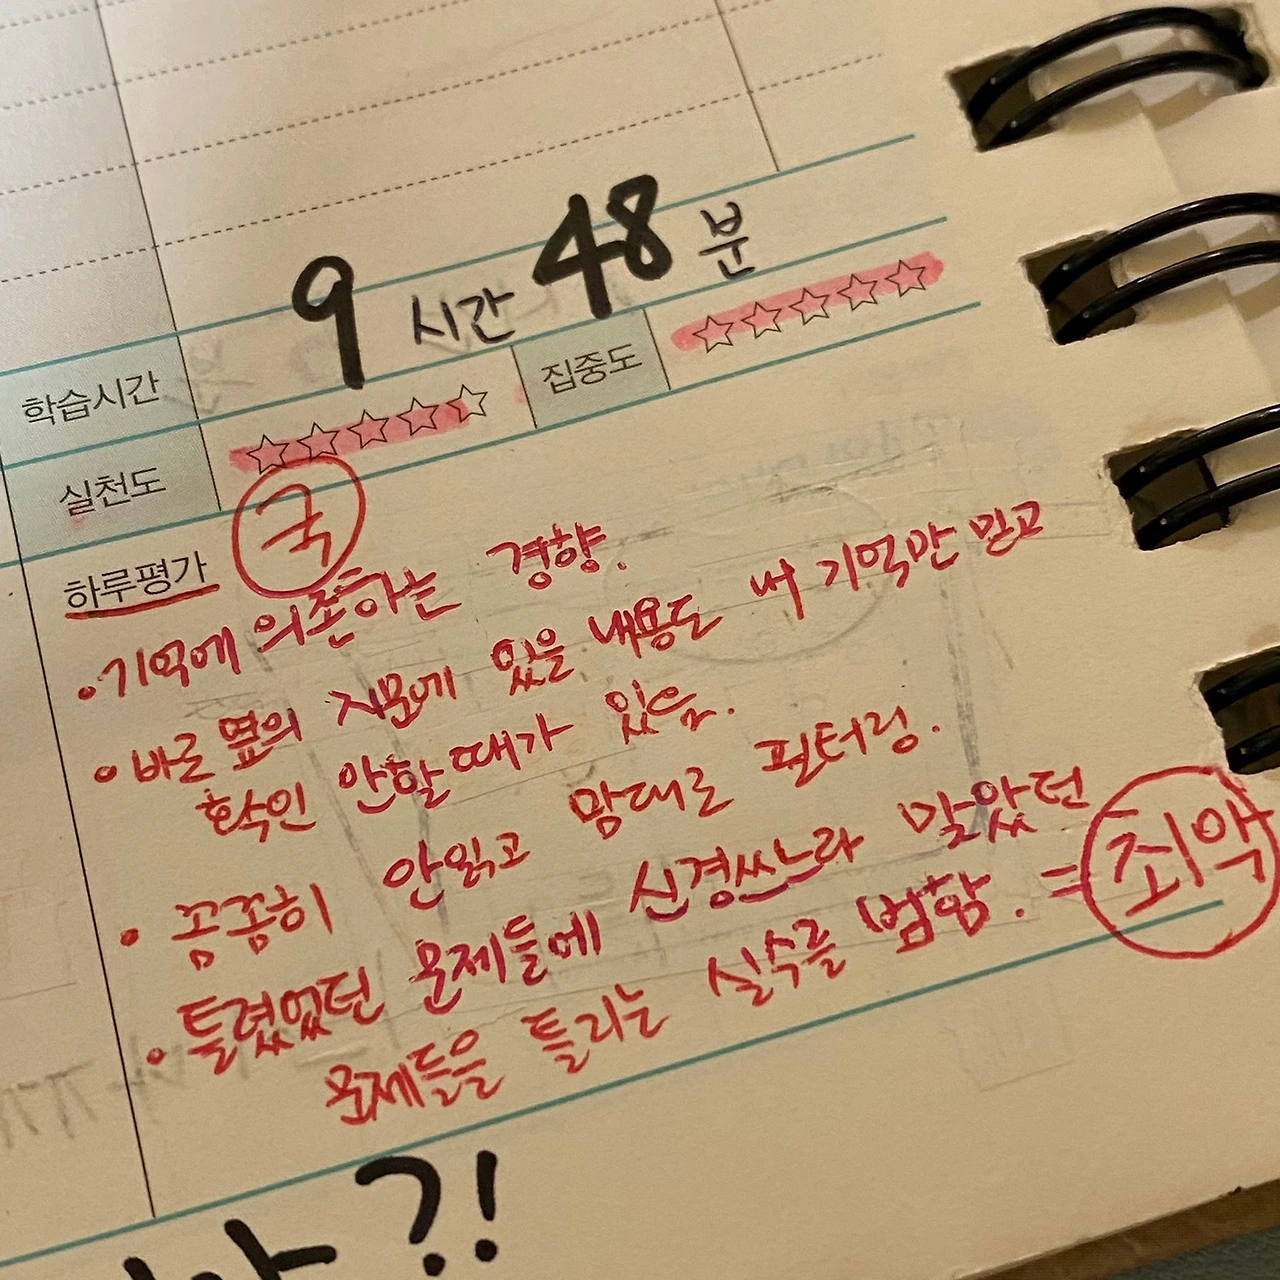 학습시간 9시간 48분
실천도 ☆☆☆☆☆ 집중도 ☆☆☆☆☆
하루평가 국
• 기억에 의존하는 경향.
• 바로 옆의 지문에 있을 내용도 내 기억만 믿고
확인 안할때가 있음.
• 꼼꼼히 안읽고 맘대로 필터링.
• 틀렸었던 문제들에 신경쓰느라 말았던
문제들을 틀리는 실수를 범함. = 최악
?!